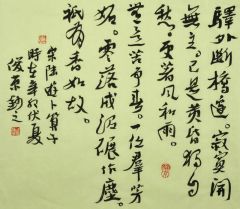 驛外斷橋邊。寂寞開
無主。已是黃昏獨自
愁。更著風和雨。
無意苦爭春。一任羣芳
妒。零落成泥碾作塵。
祇有香如故。
宋陸游卜算子
時在辛卯夏